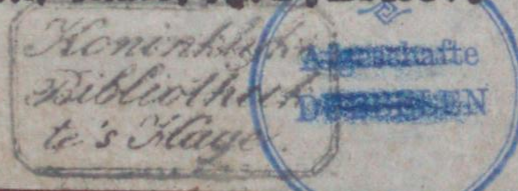 Koninklijke
Bibliotheek
te's Hage.
Afgeschafte
DOUBBELEN